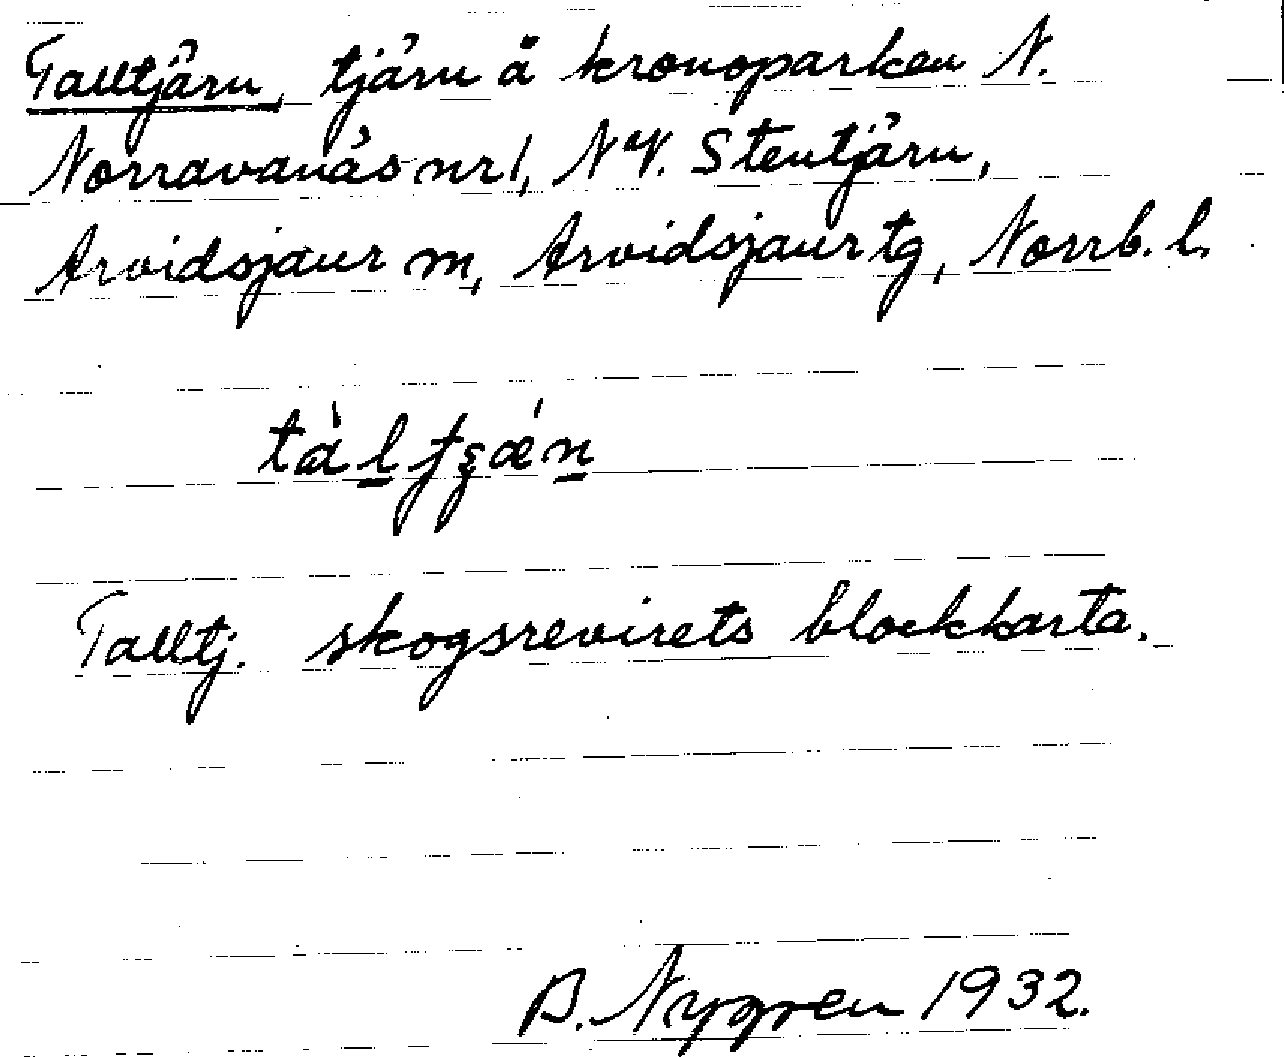 Talltjärn, tjärn å kronoparken N.
Norravanås nr 1, NV. Stentjärn,
Arvidsjaur sn, Arvidsjaur tg, Norrb. l.
Talltj. skogsrevirets blockkarta.
B. Nygren 1932.